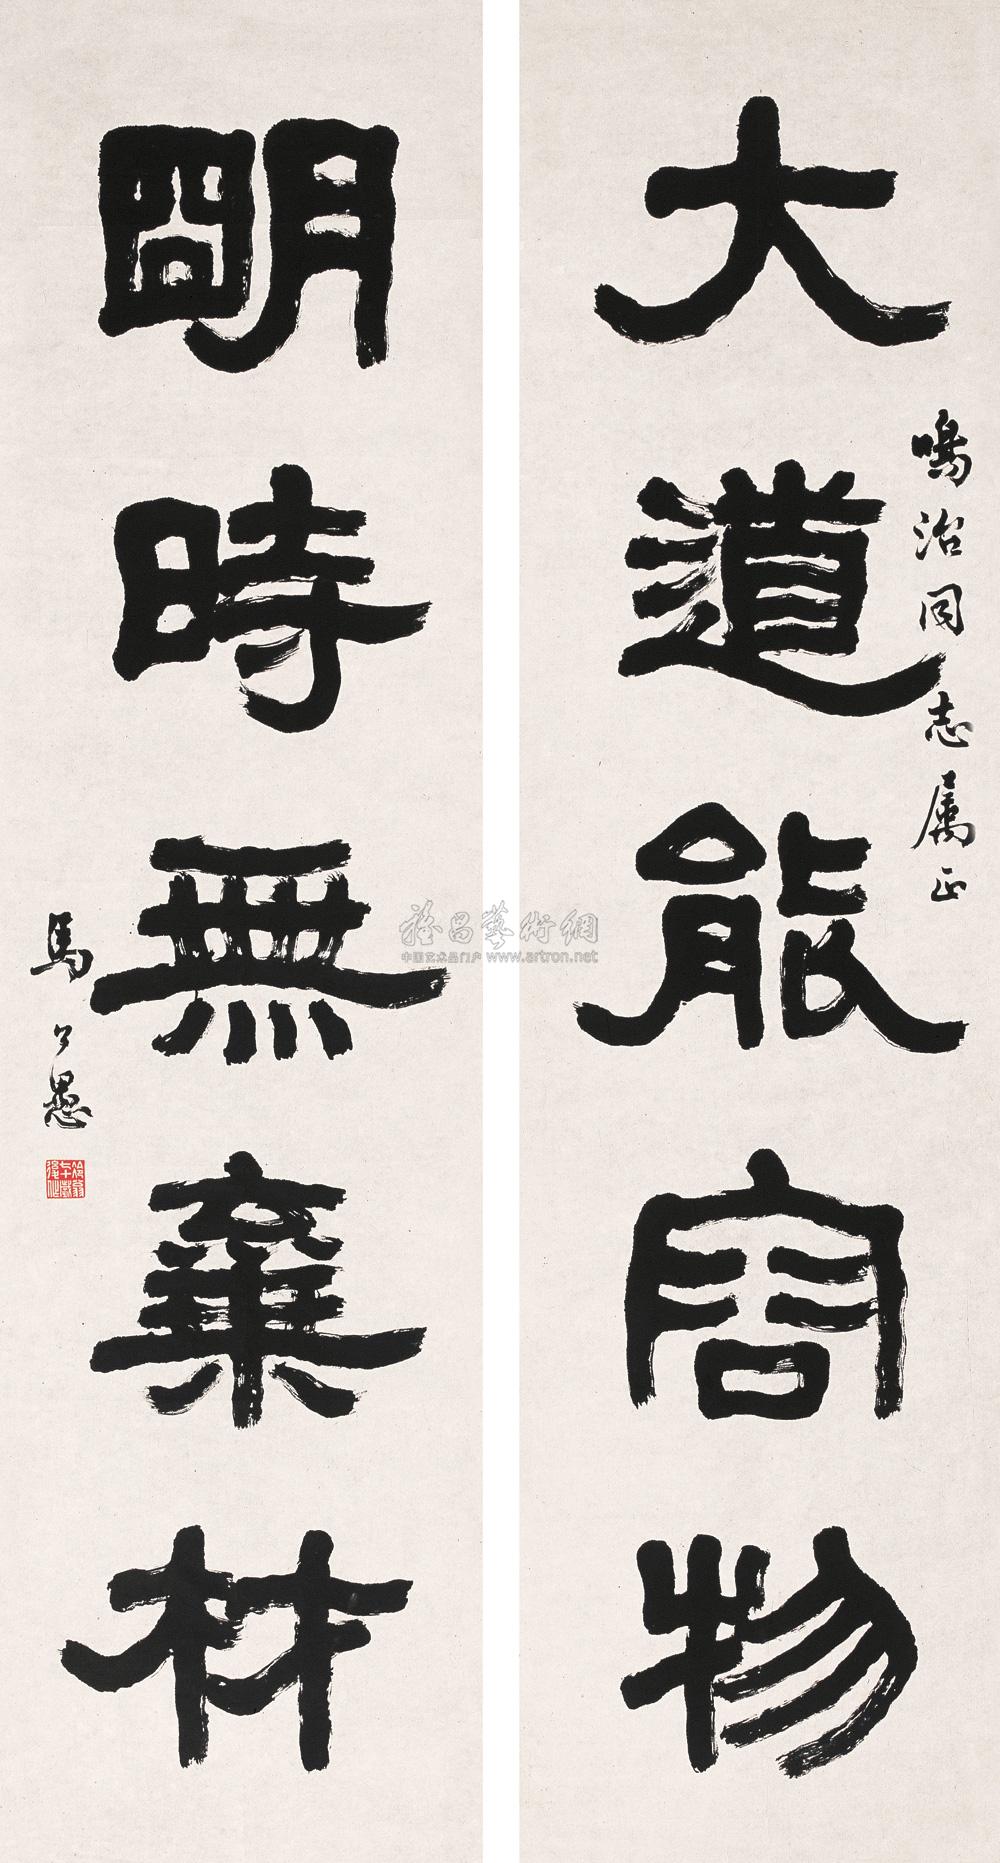 大道能容物
鳴治同志属正
明時無棄材
馬公愚
雅昌藝術網
中国艺术品门户 www.artron.net